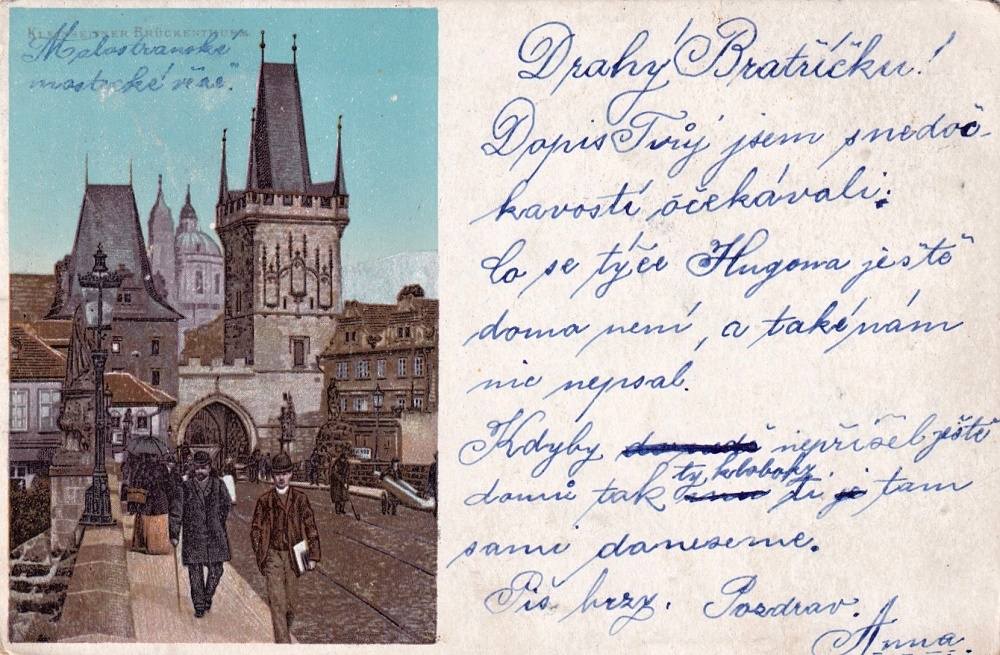 KLEINSEITNER BRÜCKENTHURM
Malostranské
mostecké věže.
Drahý Bratříčku!
Dopis Tvůj jsem s nedoč-
kavostí očekávali:
Co se týče Hugona ještě
doma není, a také nám
nic nepsal.
Kdyby nepřišel ještě
ty klobouky
domů tak ti je tam
sami doneseme.
Piš brzy. Pozdrav.
Anna.